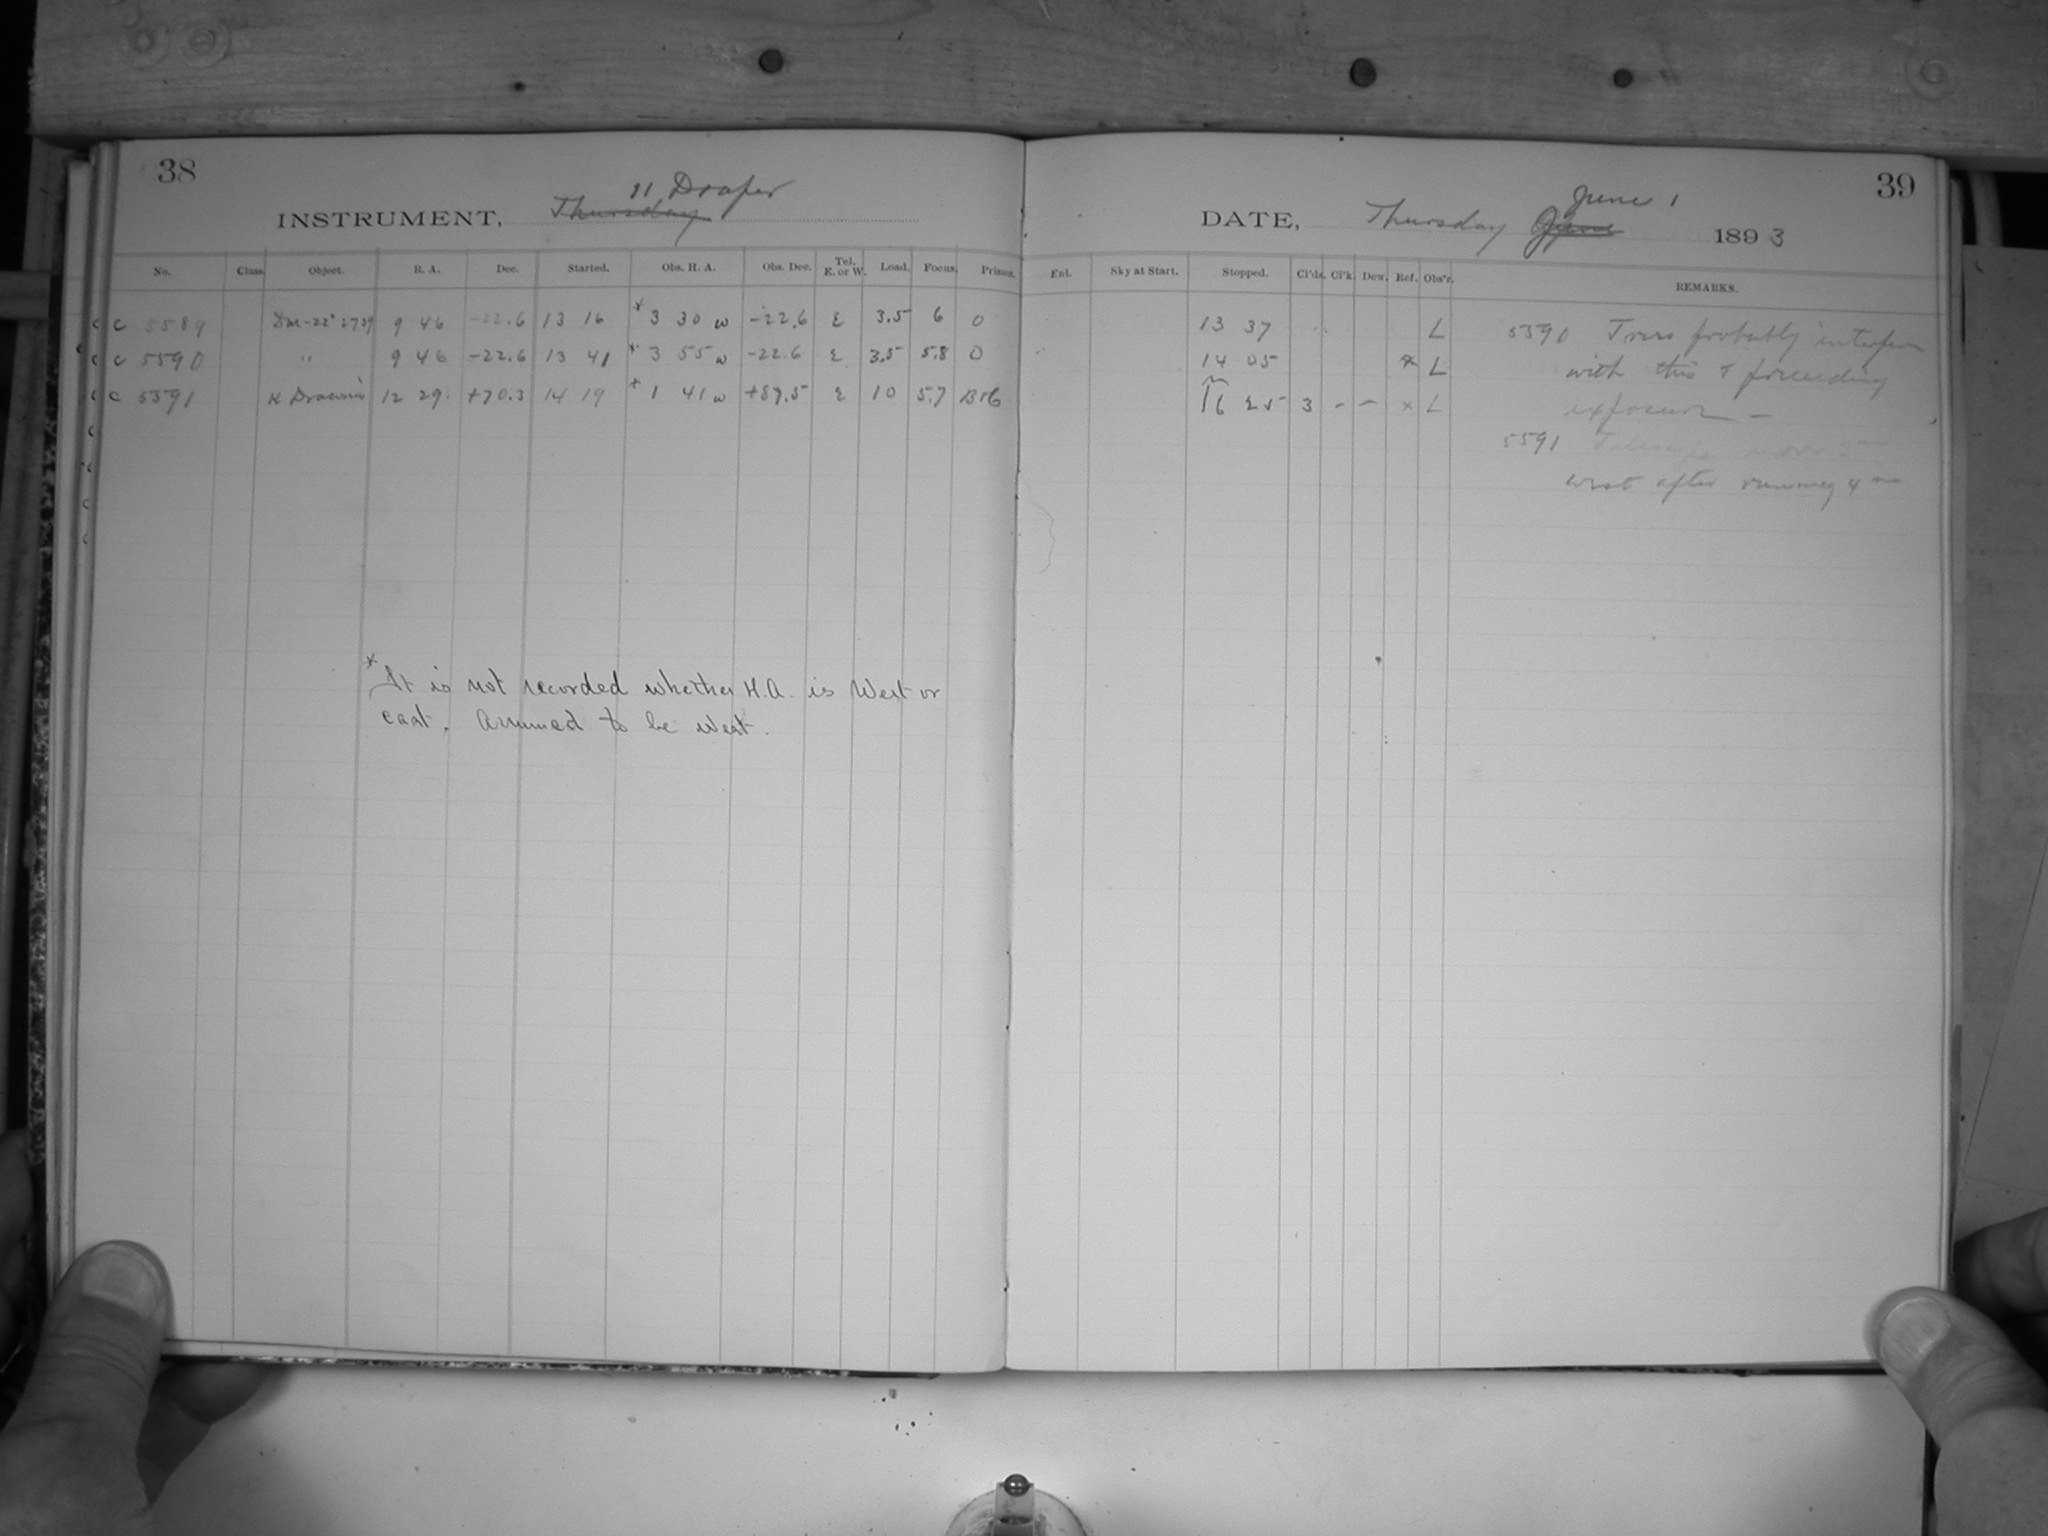 38
11 Draper
INSTRUMENT, Thursday
No. Class. Object. R. A. Dec. Started. Obs. H. A. Obs. Dec. Tel. E. or W. Load. Focus. Prisms.
c c 5589 DM -22° 2739 9 46 -22.6 13 16 * 3 30 w -22.6 E 3.5 6 0
c c 5590 " 9 46 -22.6 13 41 * 3 55 w -22.6 E 3.5 5.8 0
c c 5591 K Draconis 12 29 +70.3 14 19 * 1 41 w E 10 5.7
* It is not recorded whether H.A. is West or
east. Assumed to be west.
39
June 1
DATE, Thursday June 1893
Ent. Sky at Start. Stopped. Cl'ds. Cl'k. Dew. Ref. Obs'r. REMARKS.
13 37 L 5590 Trees probably interfere
14 05 * L with this + preceding
16 25 3 - - x L exposure —
5591 Telescope
west after running 4 m